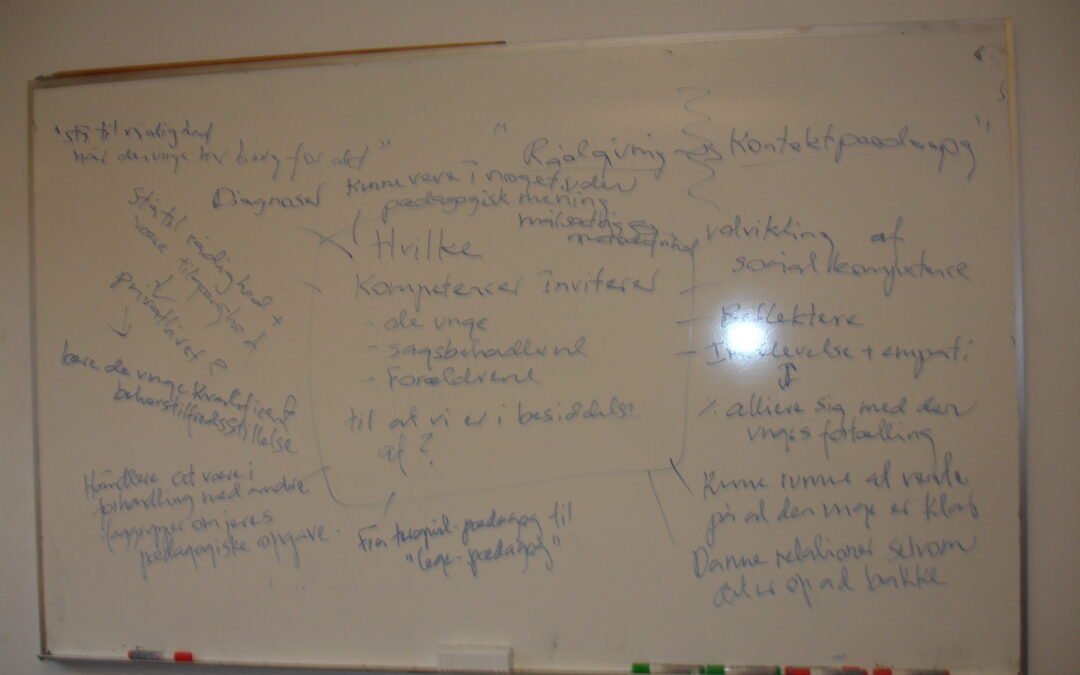 "Stå til rådighed
når den unge har brug for det"
"Rådgivning
Kontaktpædagog"
Diagnoser
Kunne være i noget uden
pædagogisk mening
målsætning og
Stå til rådighed +
være tilgængelighed
privatlivet?
lære de unge kvalificeret
behovstilfredsstillelse
Hvilke
Kompetencer inviterer
- de unge
- sagsbehandlerne
- Forældrene
til at vi er i besiddelse
af?
udvikling af
social kompetence
- Reflektere
- Indlevelse + empati
% alliere sig med den
unges fortælling
Kunne rumme at vente
på at den unge er klar
Danne relationer selvom
det er op ad bakke
Håndtere at være i
forhandling med andre
faggrupper om jeres
pædagogiske opgave.
Fra terapi-pædagog til
"læge-pædagog"